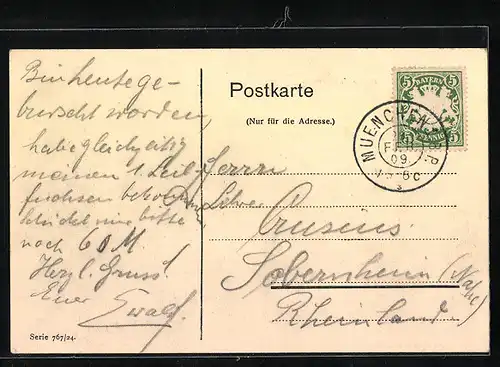 Bin heute ge-
burscht worden,
habe gleichzeitig
meinen 1. Leib-
fuchsen bekommen
schickt mir bitte
noch 60 M.
Herzl. Gruss!
Euer Ewald.
Serie 767/24.
Postkarte
(Nur für die Adresse.)
BAYERN
5 5
PFENNIG
MUENCHEN
FEB
09
Herrn
Crusius
Sobernheim (Nahe)
Rheinland